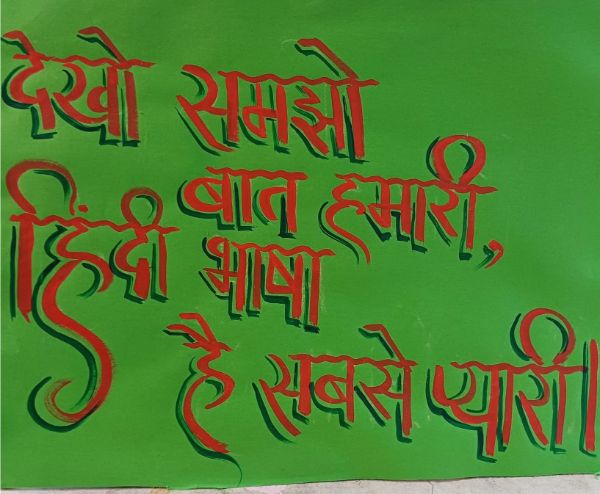 देखो समझो
बात हमारी,
हिंदी भाषा
है सबसे प्यारी।